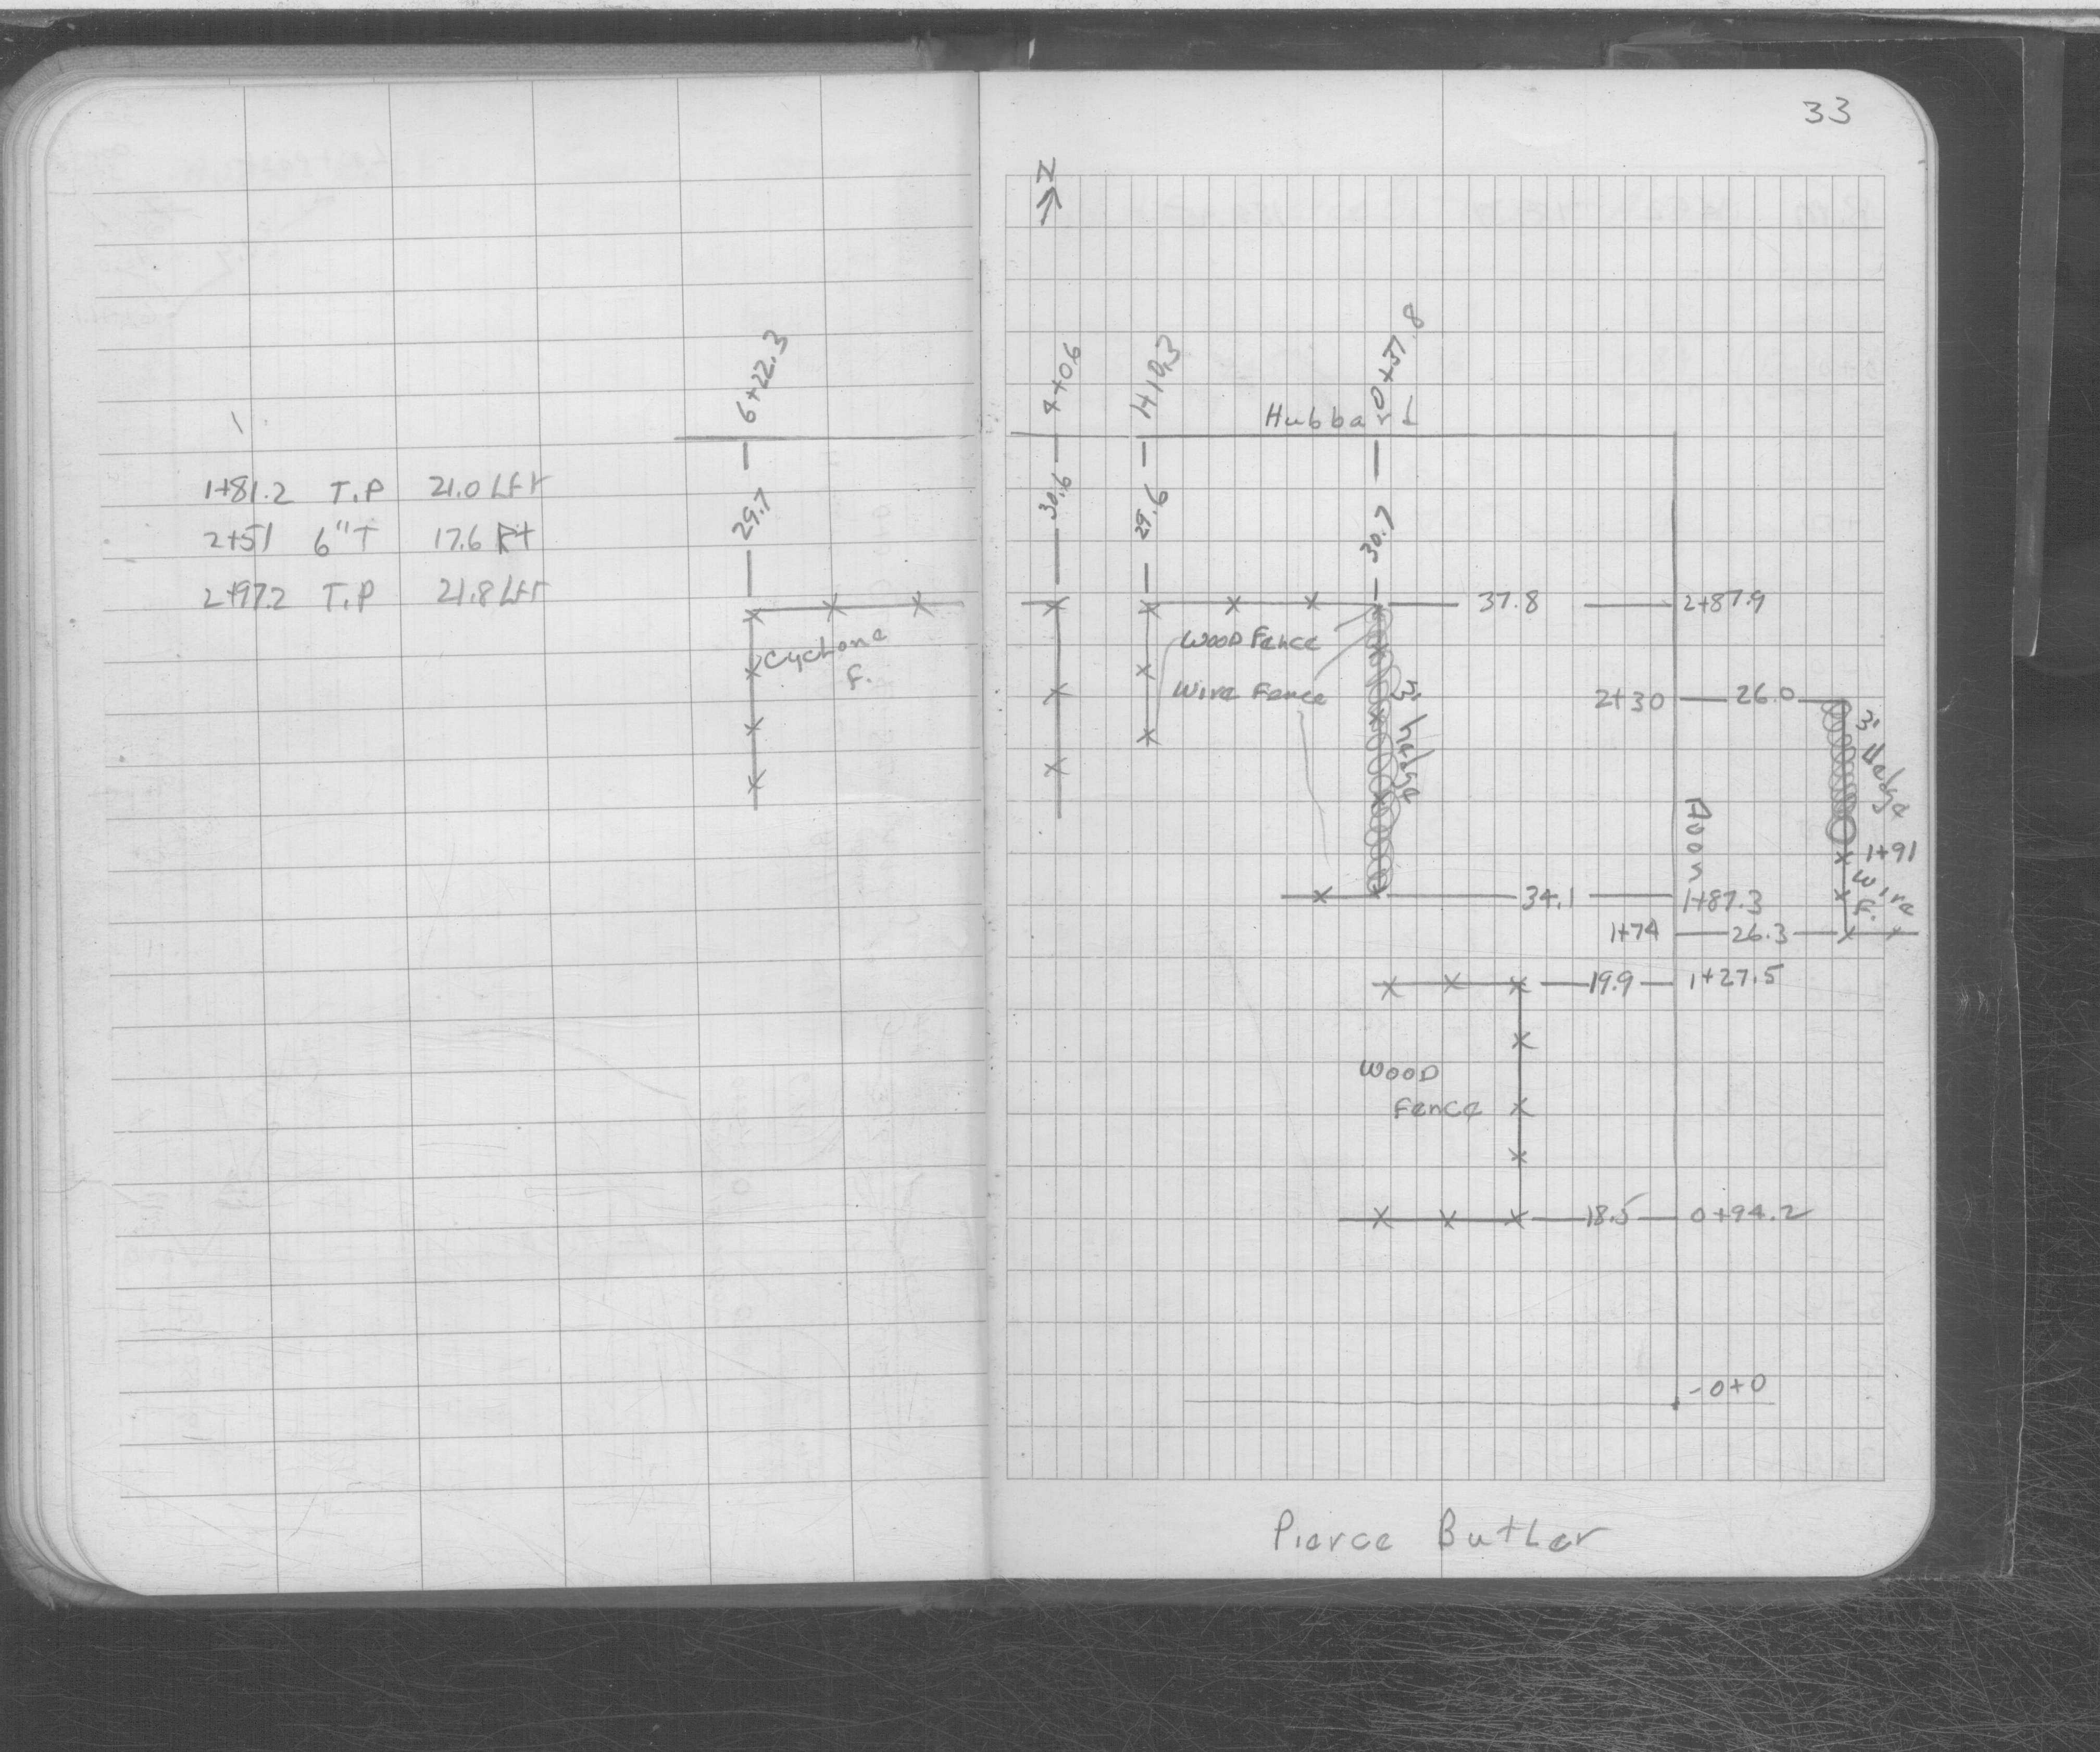 1+81.2 T.P 21.0 Lft
2+51 6"T 17.6 Rt
2+97.2 T.P 21.8 Lft
6+22.3
29.7
Cyclone
F.
33
N
4+0.6
30.6
29.6
0+37.8
Hubbard
30.7
37.8 2+87.9
Wood Fence
Wire Fence
2+30 26.0
3' Hedge
hedge
Wood
Fence
1+91
Wire
F.
34.1 1+87.3
1+74 26.3
19.9 1+27.5
18.5 0+94.2
-0+0
Pierce Butler